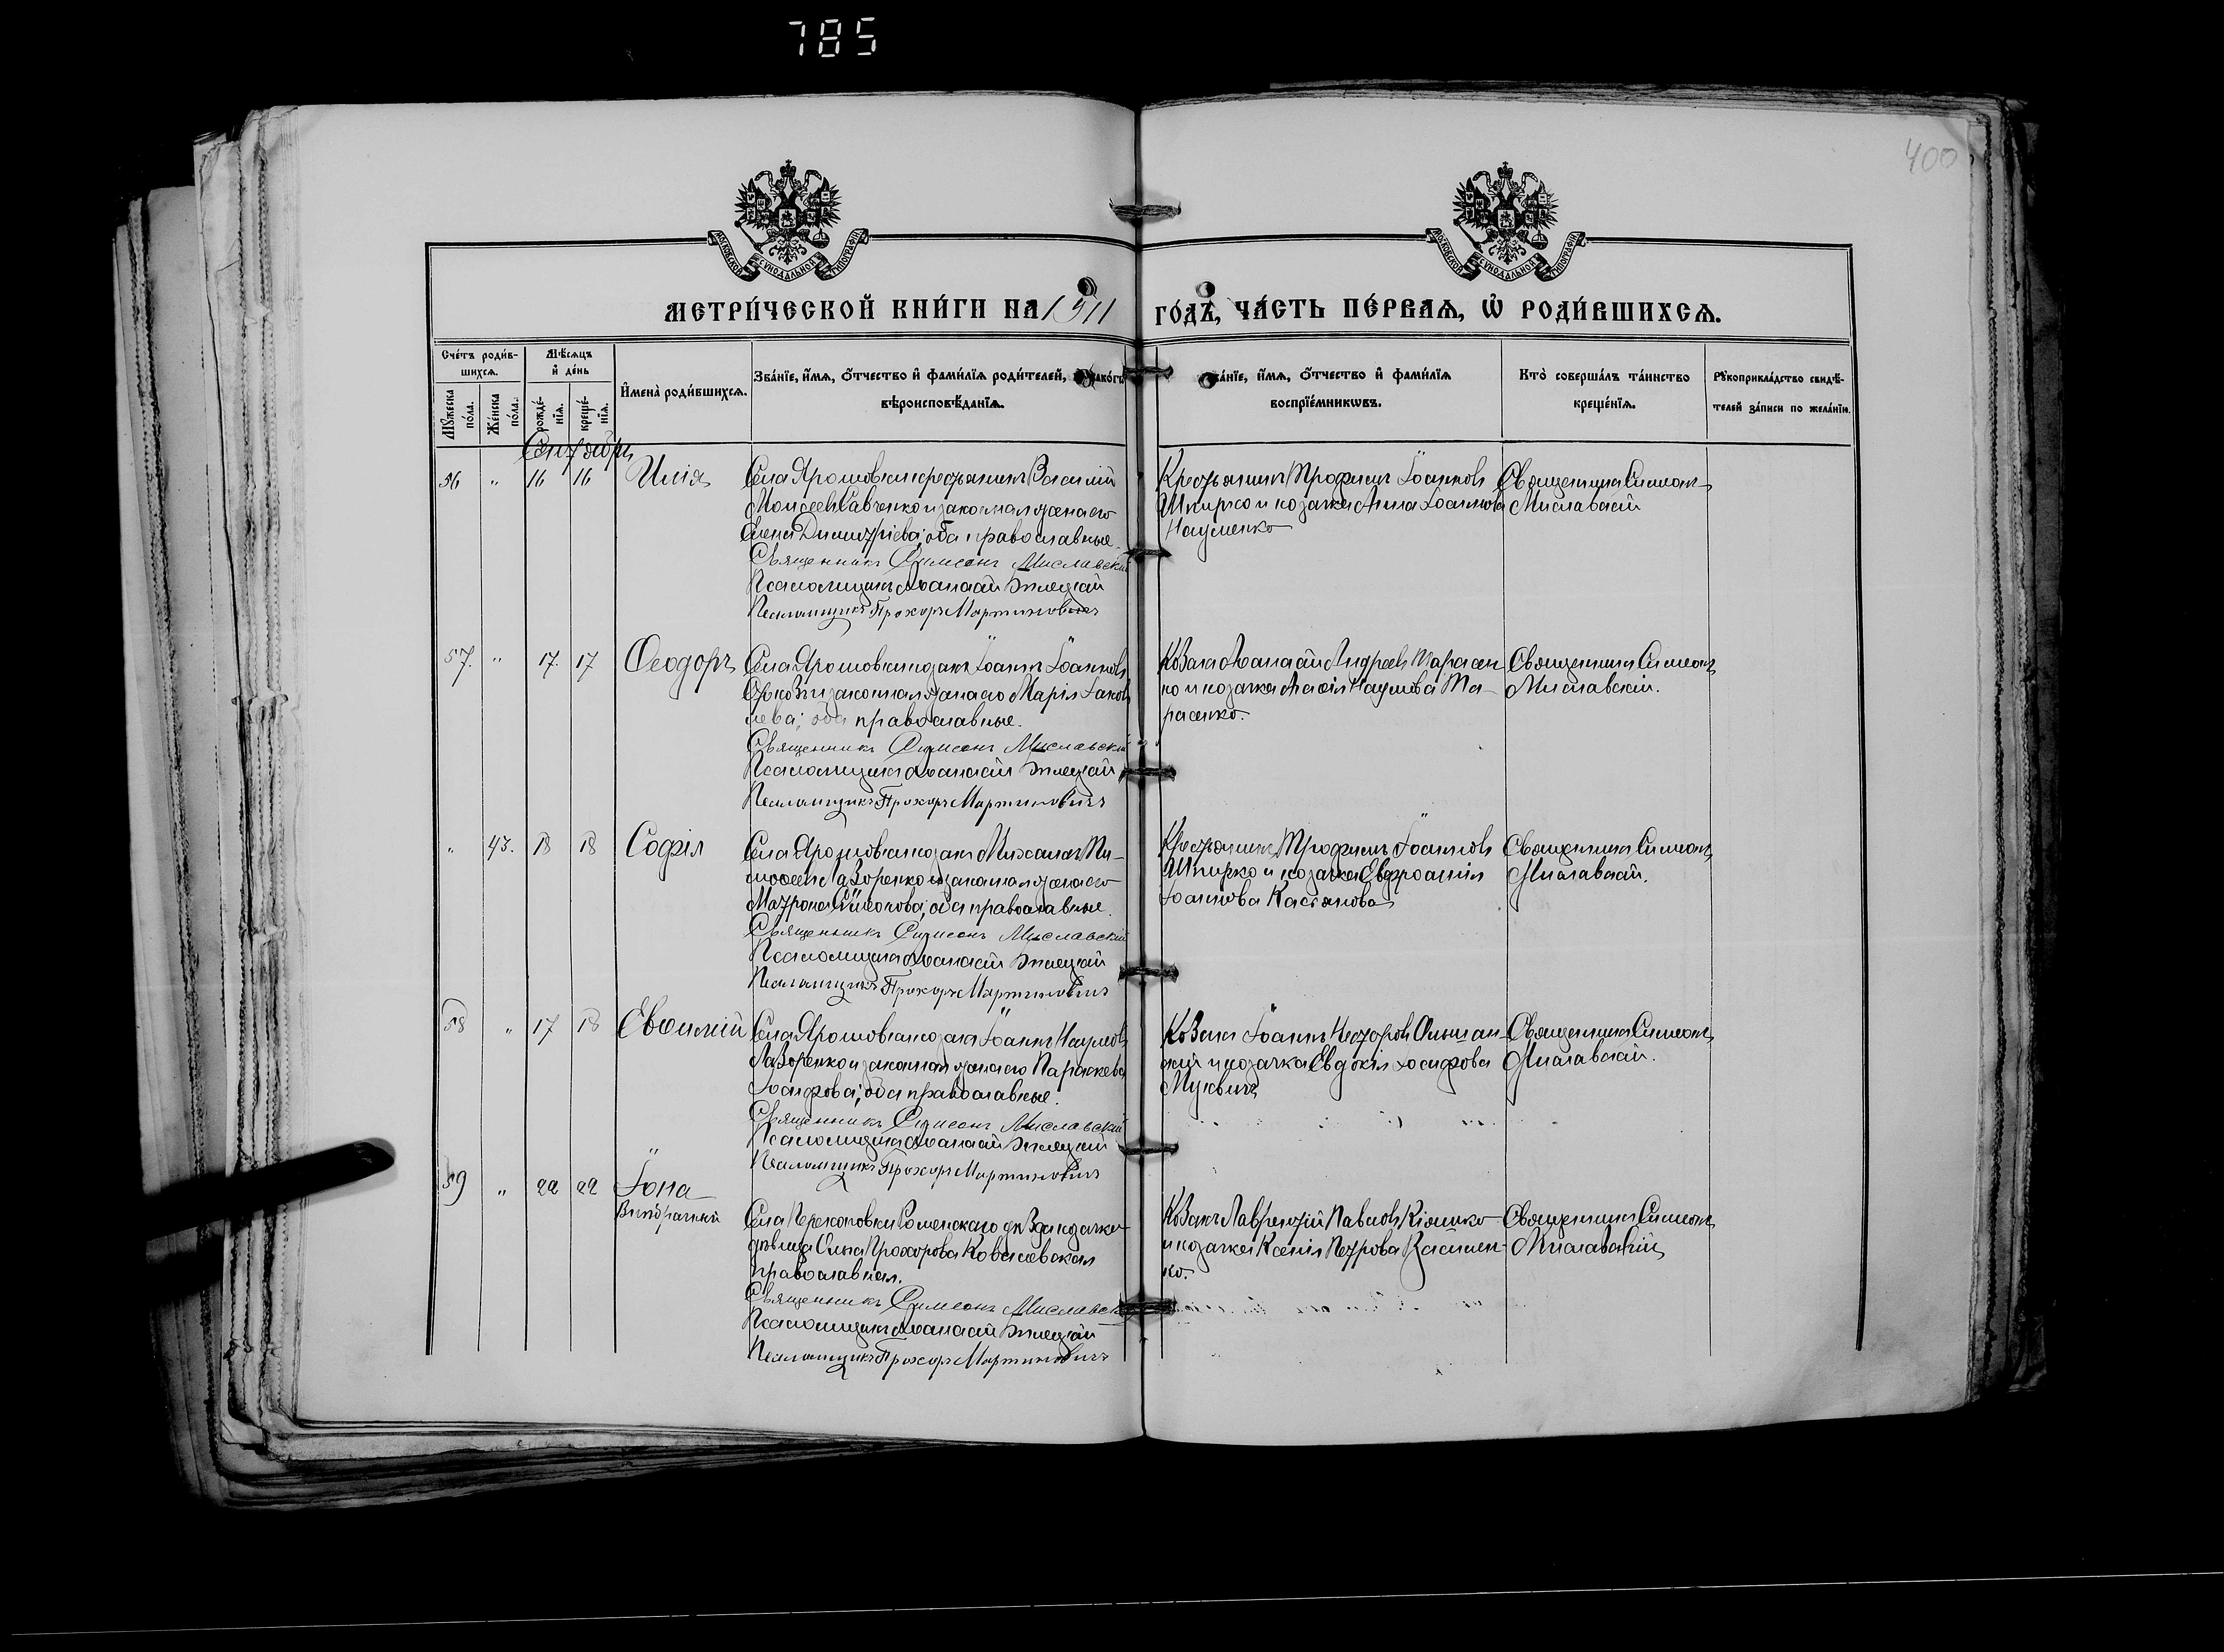 785
400
МОСКОВСКОЙ СѴНОДАЛЬНОЙ ТИПОГРАФІИ
МОСКОВСКОЙ СѴНОДАЛЬНОЙ ТИПОГРАФІИ
МЕТРИ́ЧЕСКОЙ КНИ́ГИ НА 1911 ГО́ДЪ, ЧА́СТЬ ПЕ́РВАѦ, Ѡ҆ РОДИ́ВШИХСѦ.
Сче́тъ роди́в-
шихсѧ.
Мꙋ́жеска по́ла.
Же́нска по́ла.
Мѣ́сѧцъ
и҆ де́нь
рожде́-
нїѧ.
креще́-
нїѧ.
И҆мена̀ роди́вшихсѧ.
Зва́нїе, и҆́мѧ, ѻ҆́тчество и҆ фами́лїѧ роди́телей, како́гѡ
вѣроисповѣ́данїѧ.
Зва́нїе, и҆́мѧ, ѻ҆́тчество и҆ фами́лїѧ
воспрїе́мникѡвъ.
Кто̀ соверша́лъ та́инство
креще́нїѧ.
Рꙋкоприкла́дство свидѣ́-
телей за́писи по жела́нїю.
Сентябрь
56 " 16 16 Илія
Села Ярошовки крестьянинъ Василій
Моисеевъ Савченко и законная жена его
Елена Димитріева; оба православные.
Священникъ Симеонъ Миславскій
Псаломщикъ Аѳанасій
Псаломщикъ Прохоръ Мартиновичъ
Крестьянинъ Трофимъ Іоанновъ
Шпирко и козачка Анна Іоаннова
Науменко
Священникъ Симеонъ
Миславскій
57. " 17. 17 Ѳеодоръ
Села Ярошовки козакъ Іоаннъ Іоанновъ
и законная жена его Марія Іаков
лева; оба православные.
Священникъ Симеонъ Миславскій
Псаломщикъ Аѳанасій
Псаломщикъ Прохоръ Мартиновичъ
Козакъ Аѳанасій Андреевъ Тарасен
ко и козачка Наумова Та-
расенко.
Священникъ Симеонъ
Миславскій.
" 43. 18 18 Софія
Села Ярошовки козакъ Михаилъ Ти-
моѳеевъ Лазоренко и законная жена его
Матрона Симеонова; оба православные.
Священникъ Симеонъ Миславскій
Псаломщикъ Аѳанасій
Псаломщикъ Прохоръ Мартиновичъ
Крестьянинъ Трофимъ Іоанновъ
Шпирко и козачка Евфросинія
Іоаннова Касьянова
Священникъ Симеонъ
Миславскій.
58 " 17 18 Евѳимій
Села Ярошовки козакъ Іоаннъ Наумовъ
Лазоренко и законная жена его Параскева
Іосифова; оба православные.
Священникъ Симеонъ Миславскій
Псаломщикъ Аѳанасій
Псаломщикъ Прохоръ Мартиновичъ
Козакъ Іоаннъ Несторовъ Ольшан-
скій и козачка Евдокія Іосифова
Священникъ Симеонъ
Миславскій.
59 " 22 22 Іона
Внѣбрачный
Села Перекоповки Роменскаго уѣзда козачка
дѣвица Ольга Прохорова Ковалевская
православная.
Священникъ Симеонъ Миславскій
Псаломщикъ Аѳанасій
Псаломщикъ Прохоръ Мартиновичъ
Козакъ Лаврентій Павловъ Кіяшко
и козачка Ксенія Петрова Василен-
ко.
Священникъ Симеонъ
Миславскій